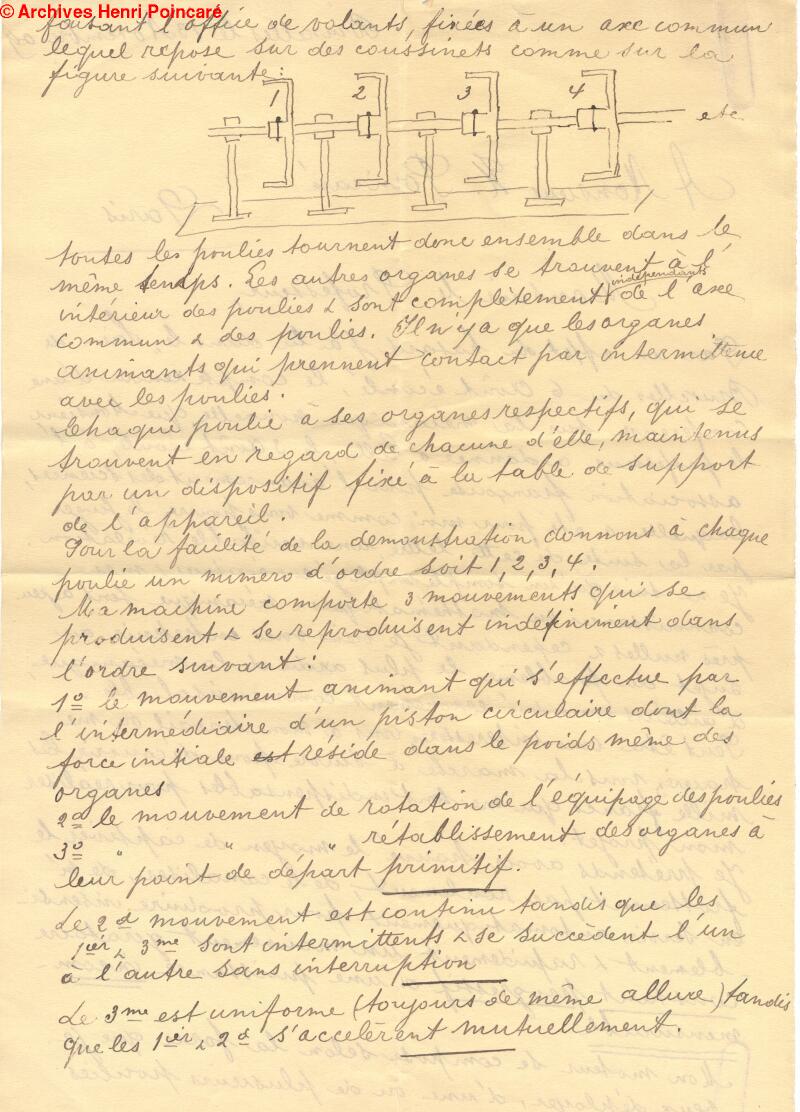 © Archives Henri Poincaré
faisant l'office de volants, fixées à un axe commun
lequel repose sur des coussinets comme sur la
figure suivante :
1 2 3 4
etc
toutes les poulies tournent donc ensemble dans le
même temps. Les autres organes se trouvent à l'
indépendants
intérieur des poulies & sont complètement de l'axe
commun & des poulies. Il n'y a que les organes
animants qui prennent contact par intermittence
avec les poulies.
Chaque poulie à ses organes respectifs, qui se
trouvent en regard de chacune d'elle, maintenus
par un dispositif fixé à la table de support
de l'appareil.
Pour la facilité de la demonstration donnons à chaque
poulie un numero d'ordre soit 1, 2, 3, 4.
Ma machine comporte 3 mouvements qui se
produisent & se reproduisent indéfiniment dans
l'ordre suivant :
1º le mouvement animant qui s'effectue par
l'intermédiaire d'un piston circulaire dont la
force initiale est réside dans le poids même des
organes
2d le mouvement de rotation de l'équipage des poulies
3º " " " rétablissement des organes à
leur point de départ primitif.
Le 2d mouvement est continu tandis que les
1ier & 3me sont intermittents & se succèdent l'un
à l'autre sans interruption
Le 3me est uniforme (toujours de même allure) tandis
que les 1ier & 2d s'accelèrent mutuellement.